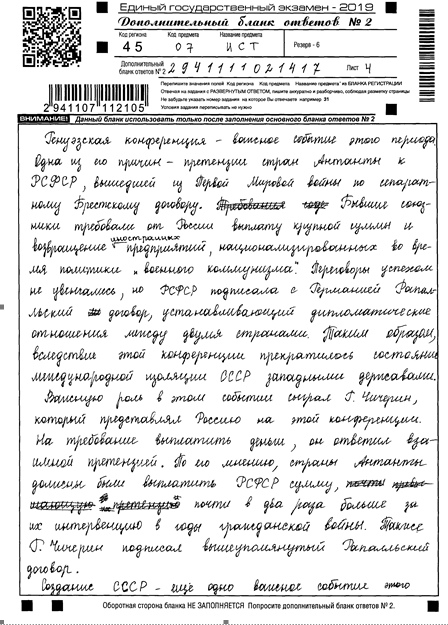 Единый государственный экзамен - 2019
Дополнительный бланк ответов № 2
Код региона Код предмета Название предмета
45 07 ИСТ Резерв - 6
Дополнительный бланк ответов № 2 Лист 4
Перепишите значения полей Код региона Код предмета Название предмета из БЛАНКА РЕГИСТРАЦИИ
Отвечая на задания с РАЗВЕРНУТЫМ ОТВЕТОМ, пишите аккуратно и разборчиво, соблюдая разметку страницы
Не забудьте указать номер задания на которое Вы отвечаете например 31
Условия задания переписывать не нужно
2941107 112105
ВНИМАНИЕ! Данный бланк использовать только после заполнения основного бланка ответов № 2
Генуэзская конференция - важное событие этого периода
Одна из его причин - претензии стран Антанты к
РСФСР, вышедшей из Первой Мировой войны по сепарат-
ному Брестскому договору. Требования Бывшие союз-
ники требовали от России выплату крупной суммы и
возвращение иностранных предприятий, национализированных во вре-
мя политики „военного коммунизма". Переговоры успехом
не увенчались, но РСФСР подписала с Германией Рапал-
льский договор, устанавливающий дипломатические
отношения между двумя странами. Таким образом,
вследствие этой конференции прекратилось состояние
международной изоляции СССР западными державами.
Важную роль в этом событии сыграл Г. Чичерин,
который представлял Россию на этой конференции.
На требование выплатить деньги, он ответил вза-
имной претензией. По его мнению, страны Антанты
должны были выплатить РСФСР сумму, почти
претензию почти в два раза больше за
их интервенцию в годы гражданской войны. Также
Г. Чичерин подписал вышеупомянутый Рапалльский
договор.
Создание СССР - ещё одно важное событие этого
Оборотная сторона бланка НЕ ЗАПОЛНЯЕТСЯ Попросите дополнительный бланк ответов № 2.